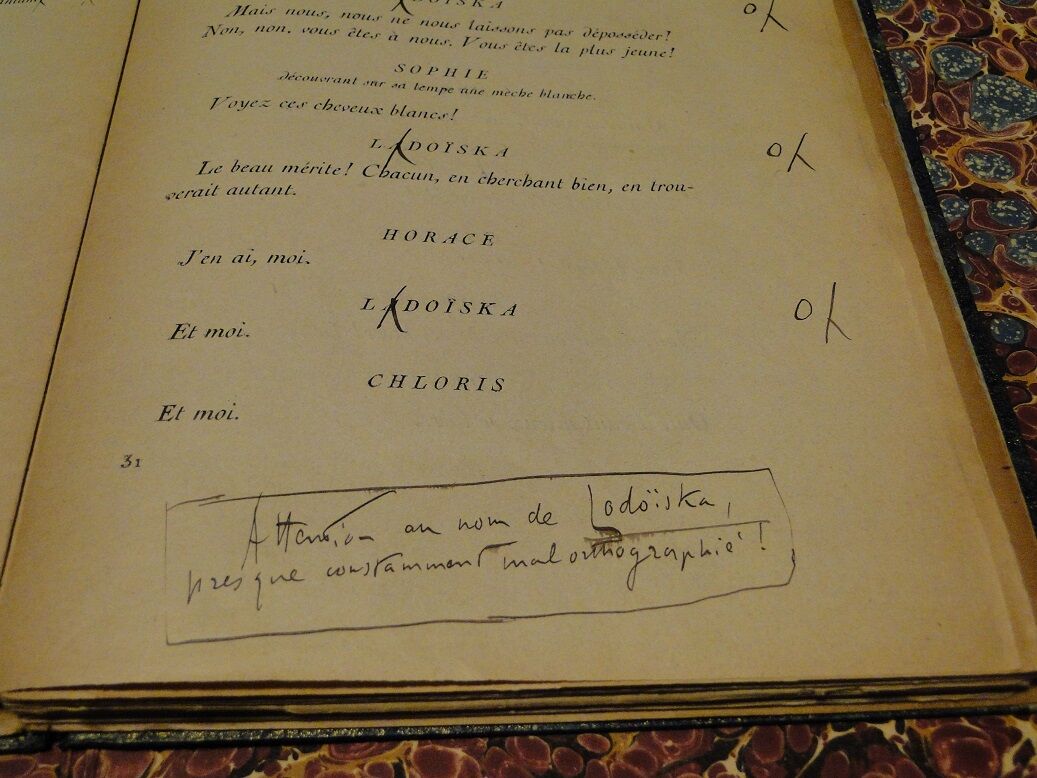 DOÏSKA
Mais nous, nous ne nous laissons pas déposséder!
Non, non. vous êtes à nous. Vous êtes la plus jeune!
SOPHIE
découvrant sur sa tempe une mèche blanche.
Voyez ces cheveux blancs!
LADOÏSKA
Le beau mérite! Chacun, en cherchant bien, en trou-
verait autant.
HORACE
J'en ai, moi.
LADOÏSKA
Et moi.
CHLORIS
Et moi.
31
Attention au nom de Lodoïska,
presque constamment mal orthographié!
o
o
o